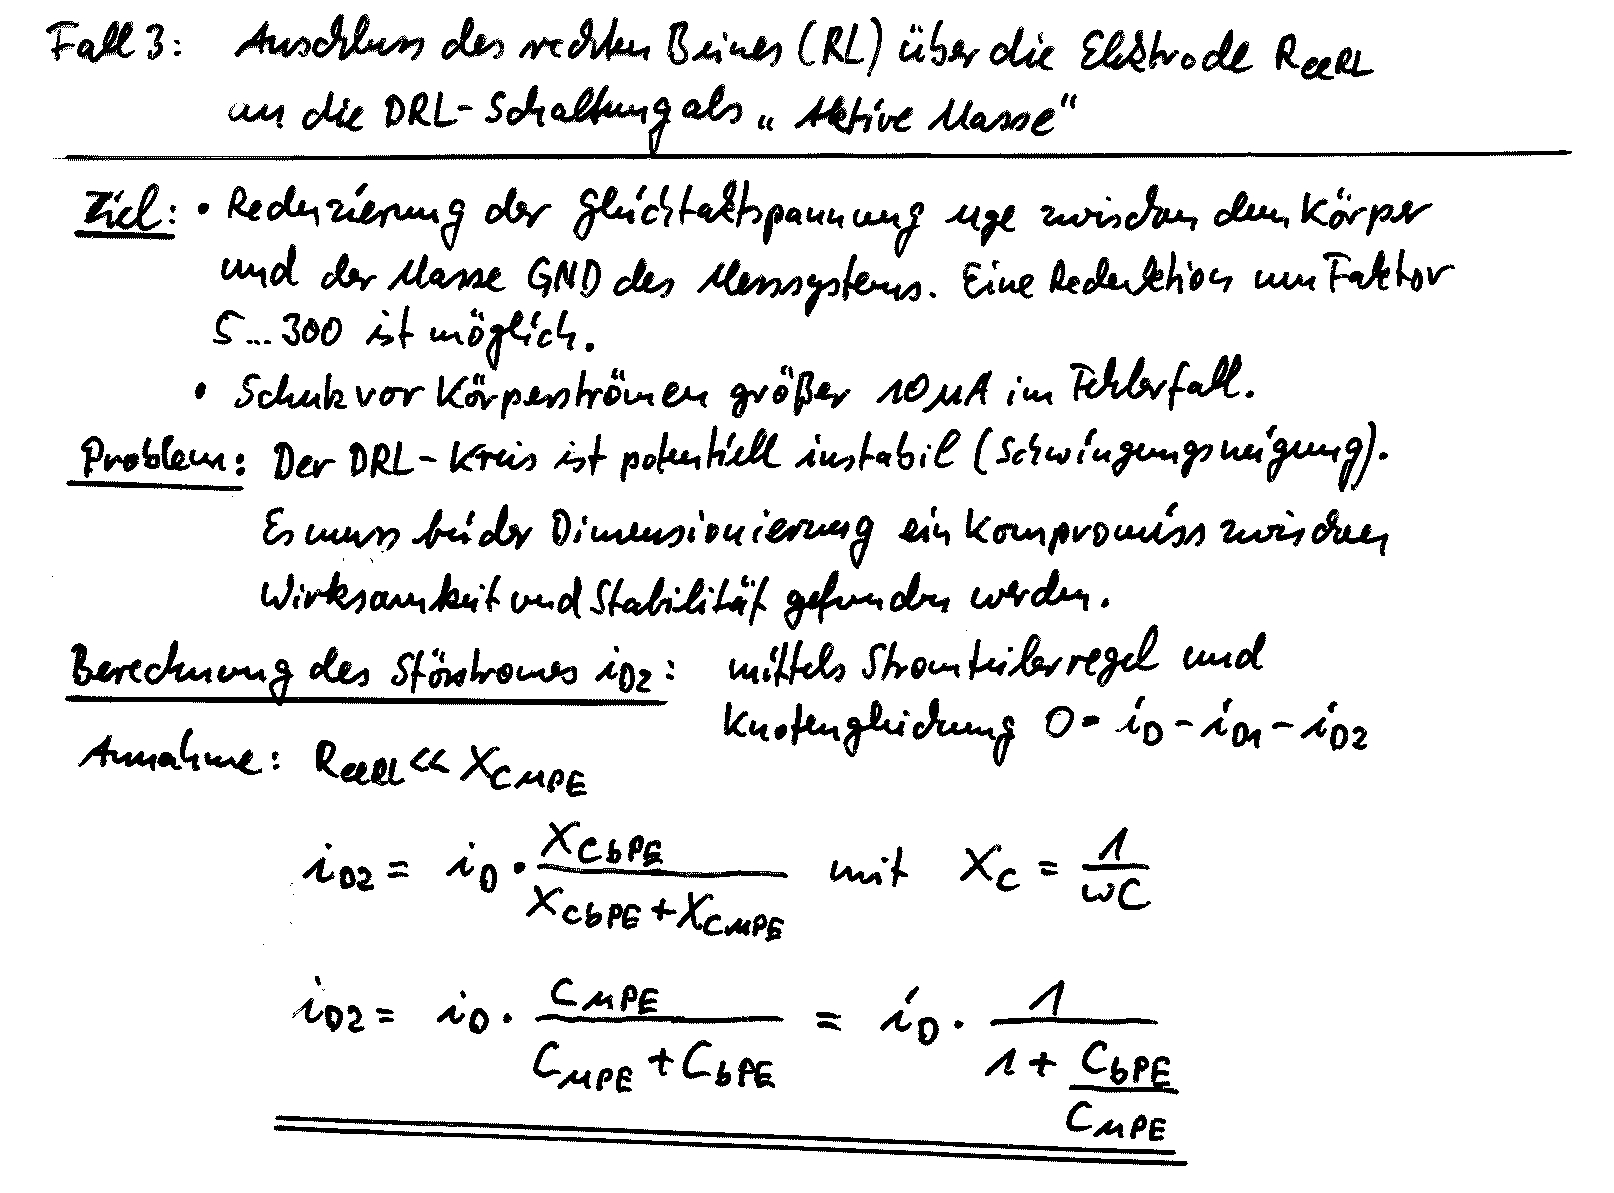 Fall 3: Anschluss des rechten Beines (RL) über die Elektrode ReeRL
an die DRL-Schaltung als „Aktive Masse“
Ziel: • Reduzierung der Gleichtaktspannung uge zwischen dem Körper
und der Masse GND des Messsystems. Eine Reduktion um Faktor
5...300 ist möglich.
• Schutz vor Körperströmen größer 10µA im Fehlerfall.
Problem: Der DRL-Kreis ist potentiell instabil (Schwingungsneigung).
Es muss bei der Dimensionierung ein Kompromiss zwischen
Wirksamkeit und Stabilität gefunden werden.
Berechnung des Störstromes iD2: mittels Stromteilerregel und
Knotengleichung 0 = iD - iD1 - iD2
Annahme: ReeRL << XCMPE
iD2 = iD · XCbPE / (XCbPE + XCMPE) mit XC = 1 / ωC
iD2 = iD · CMPE / (CMPE + CbPE) = iD · 1 / (1 + CbPE / CMPE)